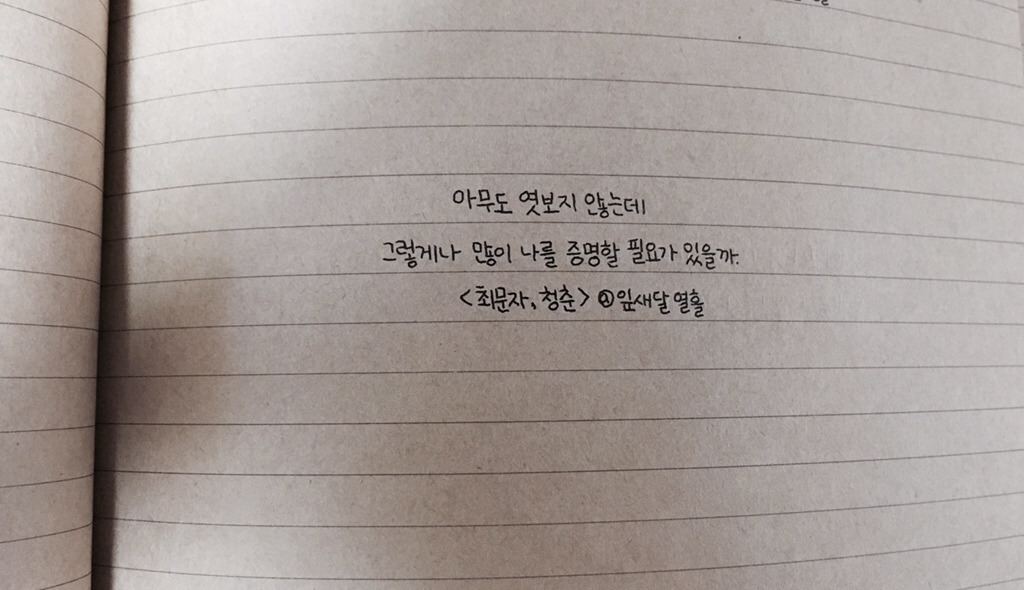 아무도 엿보지 않는데
그렇게나 많이 나를 증명할 필요가 있을까.
<최문자, 청춘> ⓐ잎새달 열흘